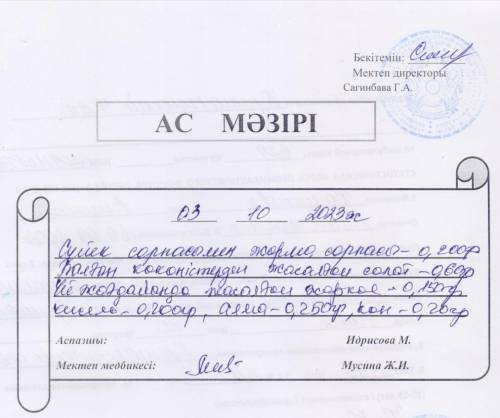 Бекітемін:
Мектеп директоры
Сагинбава Г.А.
АС МӘЗІРІ
03 10 2023ж
Сүйек сорпасымен жарма сорпасы - 0,200гр
Балғын көкөністерден жасалған салат - 0,60гр
Үй жағдайында жасалған жаркое - 0,150гр
кисель - 0,200гр, алма - 0,250гр, нан - 0,20гр
Аспазшы: Идрисова М.
Мектеп медбикесі: Мусина Ж.И.